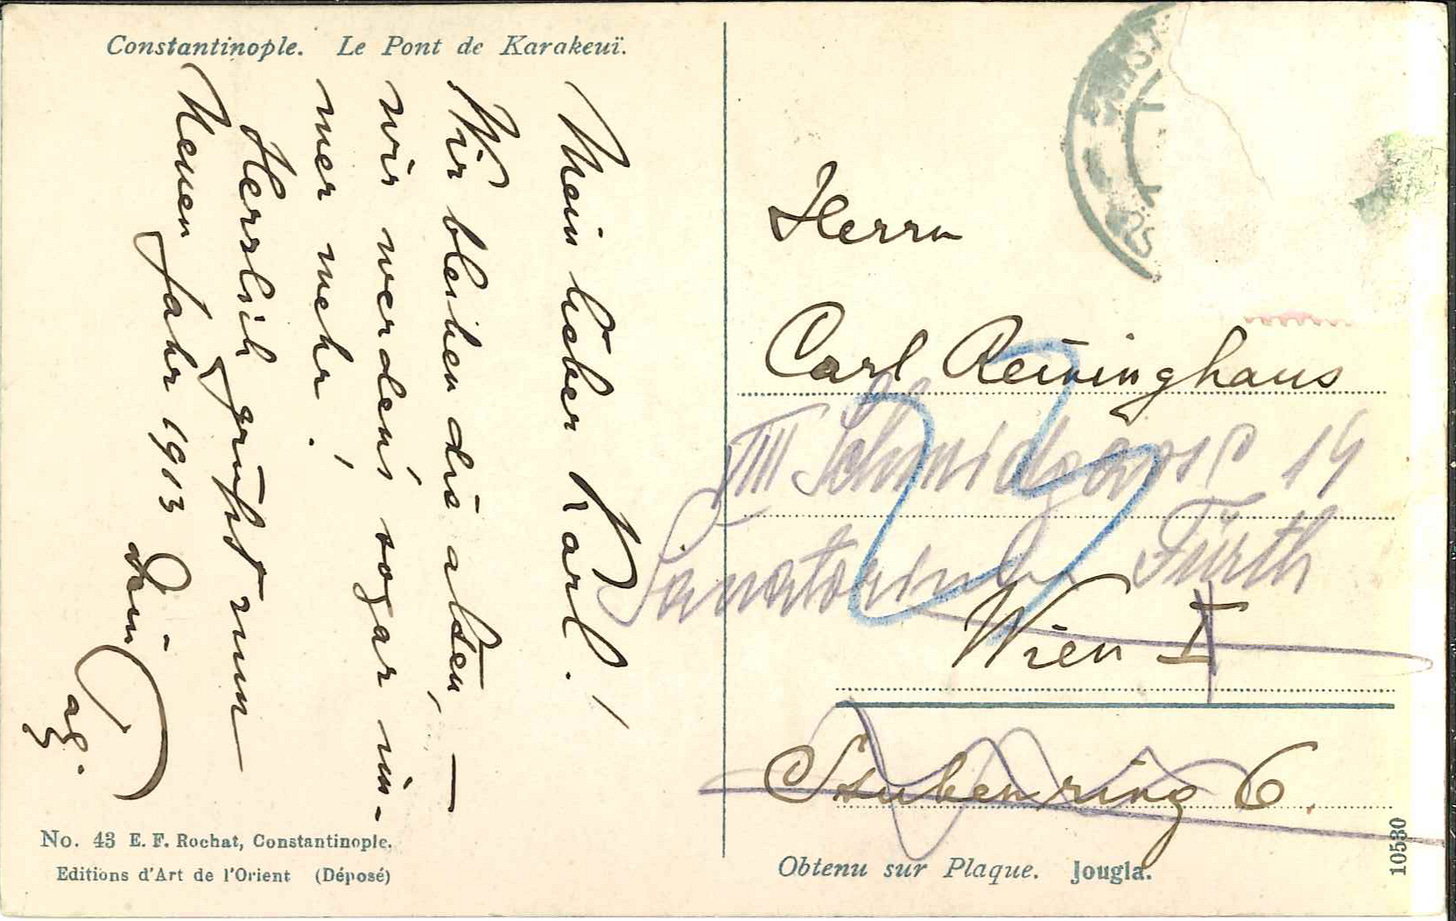 Constantinople. Le Pont de Karakeuï.
Mein lieber Karl!
Wir bleiben die alten, —
wir werden's sogar im-
mer mehr!
Herzlich grüßt zum
Neuen Jahr 1913 Dein
Herrn
Carl Reininghaus
VIII Schmidgasse 14
Sanatorium Fürth
Wien I
Stubenring 6.
No. 43 E. F. Rochat, Constantinople.
Editions d'Art de l'Orient (Déposé)
Obtenu sur Plaque. Jougla.
10530